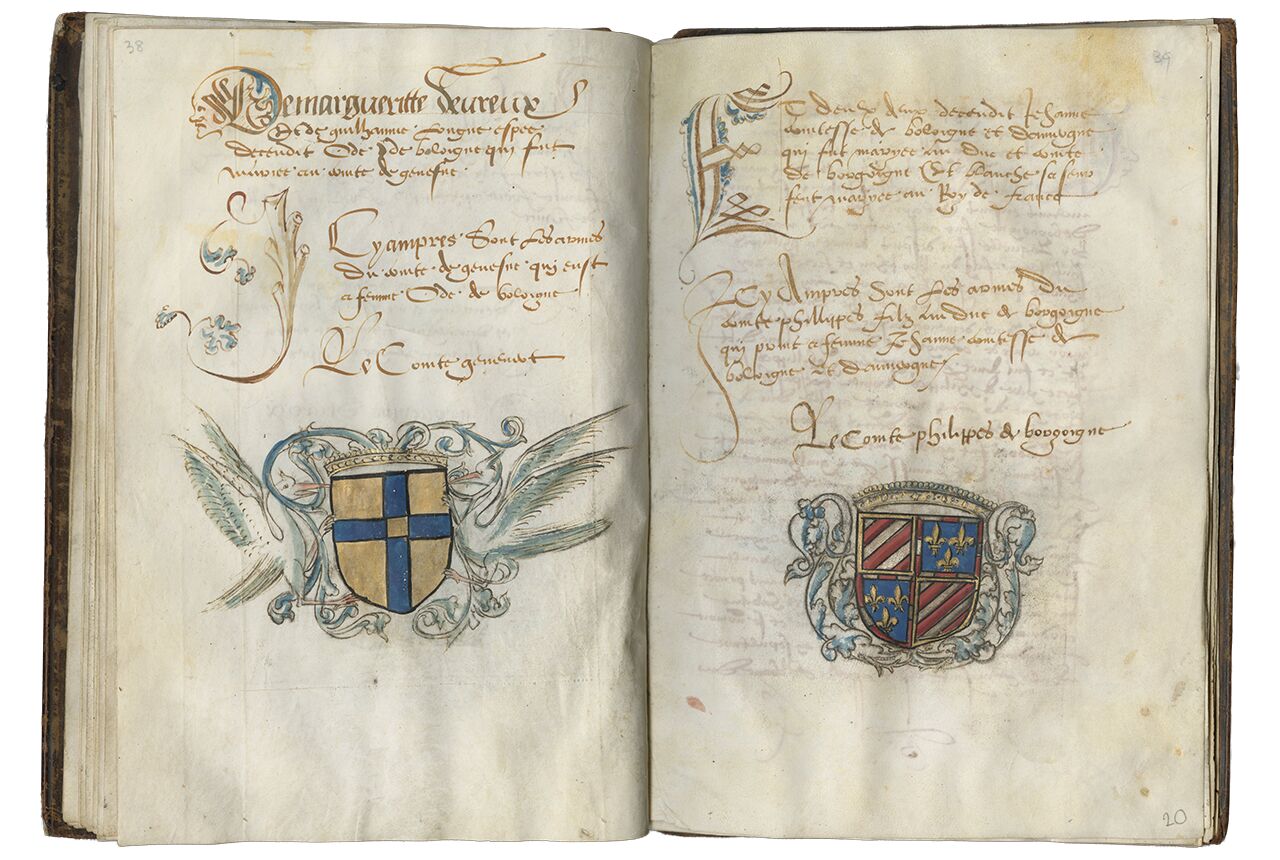 38
De margueritte deureux
Et de guilhaume Longue espee
decendit Ode de boloigne qui fut
mariee au comte de genefue
Icy ampres Sont les armes
du comte de genefue qui eust
a femme Ode de boloigne
Le Comte genevois
39
ET deulx deux decendit Jehanne
comtesse de boloigne et dauvergne
qui fut mariee au duc et comte
de borgoigne Et blanche sa seur
feut mariee au Roy de france
Icy Ampres Sont les armes du
comte phillippes filz au duc de borgoigne
qui print a femme Jehanne comtesse de
boloigne et dauvergne
Le Comte philippes de borgoigne
20